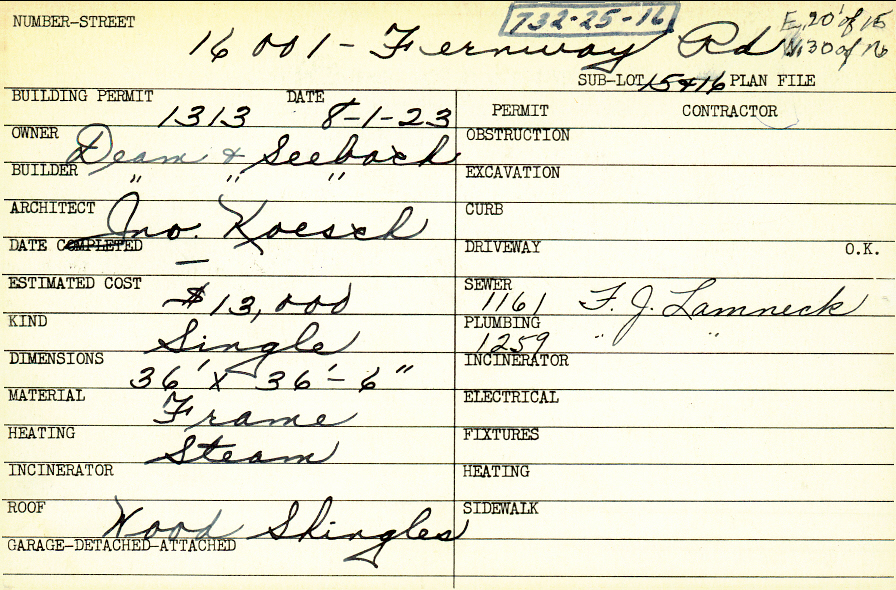 NUMBER-STREET 732-25-16 E,20' of 15
16001 - Fernway Rd W,30 of 16
SUB-LOT 15+16 PLAN FILE
BUILDING PERMIT 1313 DATE 8-1-23
OWNER Deam & Seebach
BUILDER " " "
ARCHITECT Jno. Koesch
DATE COMPLETED —
ESTIMATED COST $13,000
KIND Single
DIMENSIONS 36' X 36'-6"
MATERIAL Frame
HEATING Steam
INCINERATOR
ROOF Wood Shingles
GARAGE-DETACHED-ATTACHED
PERMIT CONTRACTOR
OBSTRUCTION
EXCAVATION
CURB
DRIVEWAY O.K.
SEWER 1161 F. J. Lamneck
PLUMBING 1259 " "
INCINERATOR
ELECTRICAL
FIXTURES
HEATING
SIDEWALK